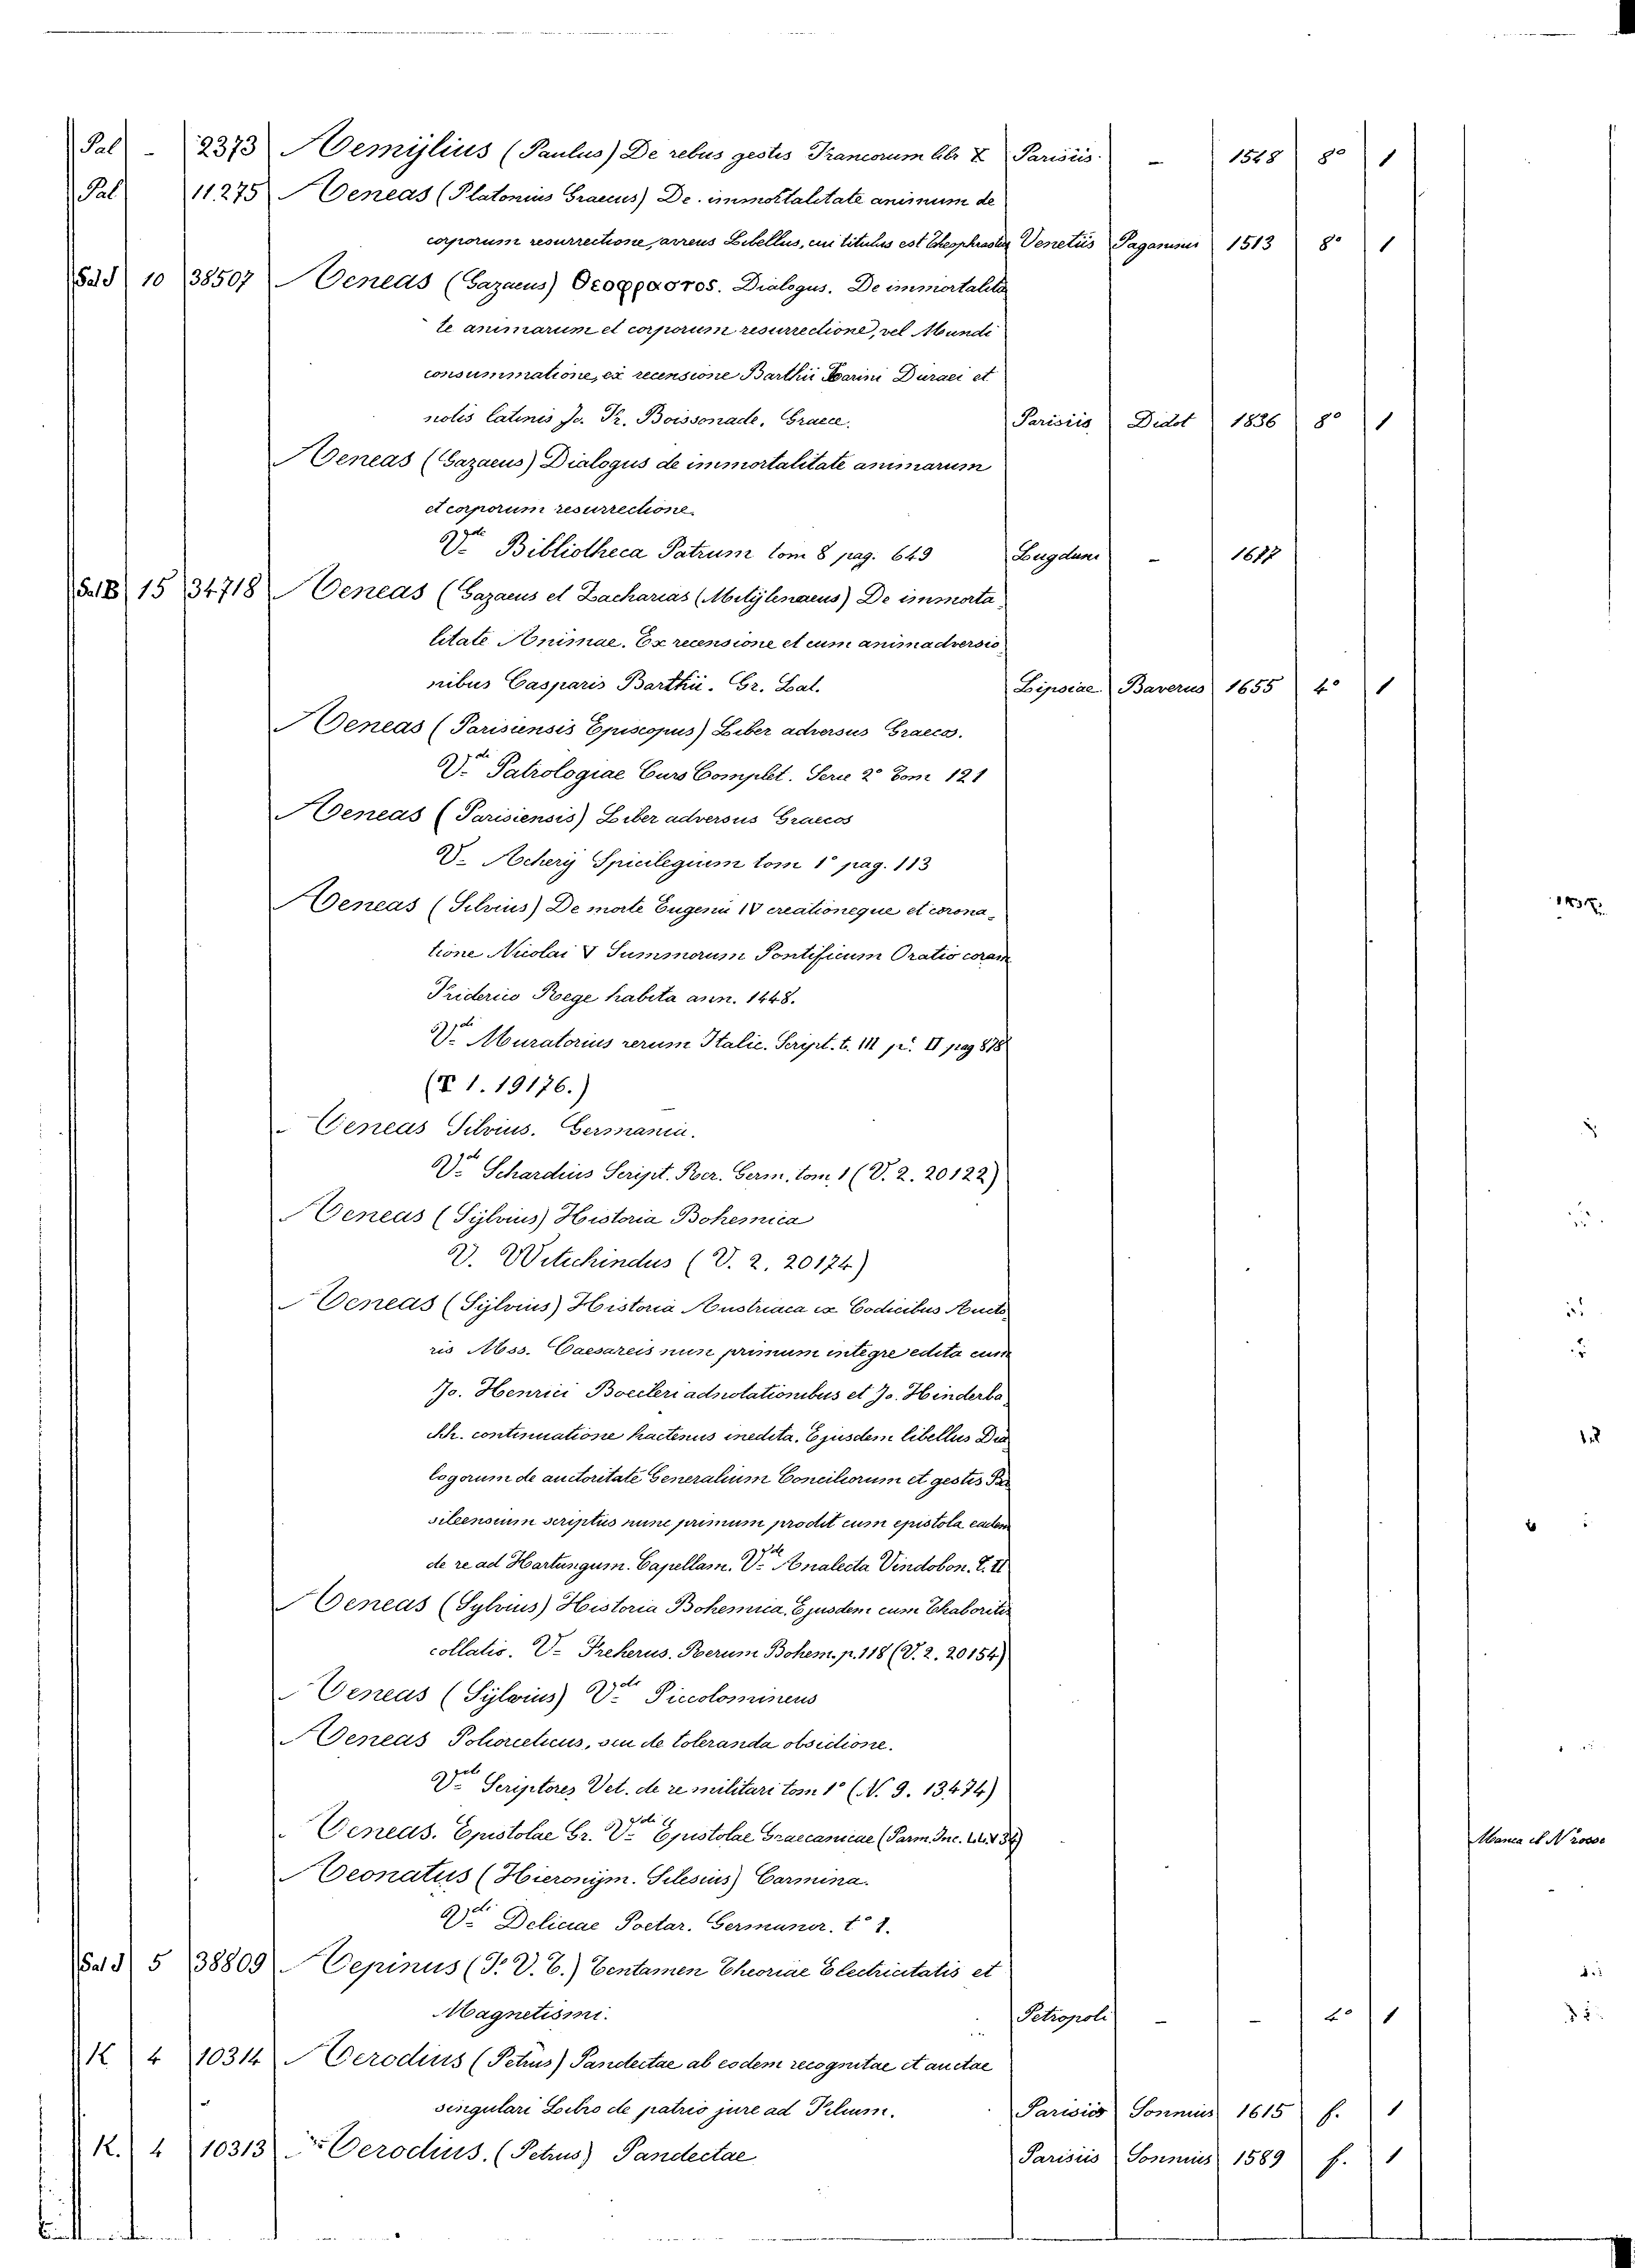 Pal - 2373 Aemijlius (Paulus) De rebus gestis Francorum libr X Parisiis - 1548 8° 1
Pal 11.275 Aeneas (Platonius Graecus) De immortalitate animum de
corporum resurrectione, aureus Libellus, cui titulus est Venetiis Paganinus 1513 8° 1
Sal J 10 38507 Aeneas (Gazaeus) Dialogus. De immortalita
te animarum et corporum resurrectione, vel Mundi
consummatione, ex recensione Barthii Marini Duraei et
notis latinis Jo. Fr. Boissonade. Graece. Parisiis Didot 1836 8° 1
Aeneas (Gazaeus) Dialogus de immortalitate animarum
et corporum resurrectione.
Vde Bibliotheca Patrum tom 8 pag. 649 Lugduni - 1677
Sal B 15 34718 Aeneas (Gazaeus et Zacharias (Mitijlenaeus) De immorta
litate Animae. Ex recensione et cum animadversio
nibus Casparis Barthii. Gr. Lat. Lipsiae Baverus 1655 4° 1
Aeneas (Parisiensis Episcopus) Liber adversus Graecos.
Vde Patrologiae Curs Complet. Serie 2° Tom 121
Aeneas (Parisiensis) Liber adversus Graecos
V. Acherij Spicilegium tom 1° pag. 113
Aeneas (Silvius) De morte Eugenii IV creationeque et corona
tione Nicolai V Summorum Pontificum Oratio coram
Friderico Rege habita ann. 1448.
Vde Muratorius rerum Italic. Script. t. III p. II pag 878
(T 1. 19176.)
Aeneas Silvius. Germania.
Vde Schardius Script. Rer. Germ. tom. 1 (V. 2. 20122)
Aeneas (Sijlvius) Historia Bohemica
V. Witichindus (V. 2. 20174)
Aeneas (Sijlvius) Historia Austriaca ex Codicibus Aucto
ris Mss. Caesareis nun primum integre edita cum
Jo. Henrici Boecleri adnotationibus et Jo. Hinderba
ch. continuatione hactenus inedita. Ejusdem libellus Dia
logorum de auctoritate Generalium Conciliorum et gestis Ba
sileensium scriptus nunc primum prodit cum epistola eadem
de re ad Hartungum. Capellam. Vde Analecta Vindobon. T. II
Aeneas (Sylvius) Historia Bohemica. Ejusdem cum Thaboritis
collatio. V. Freherus. Rerum Bohem. p. 118 (V. 2. 20154)
Aeneas (Sijlvius) Vde Piccolomineus
Aeneas Poliorceticus, seu de toleranda obsidione.
Vde Scriptores Vet. de re militari tom 1° (N. 9. 13474)
Aeneas. Epistolae Gr. Vdi Epistolae Graecanicae (Parm. Inc. 134) Manca il N rosso
Aeonatus (Hieronijm. Silesius) Carmina.
Vdi Deliciae Poetar. Germanor. t° 1.
Sal J 5 38809 Aepinus (F. V. T.) Tentamen Theoriae Electricitatis et
Magnetismi. Petropoli - - 4° 1
K 4 10314 Aerodius (Petrus) Pandectae ab eodem recognitae et auctae
singulari Libro de patrio jure ad Filium. Parisiis Sonnius 1615 f. 1
K. 4 10313 Aerodius. (Petrus) Pandectae Parisiis Sonnius 1589 f. 1